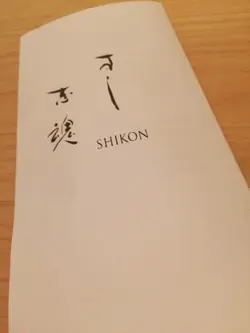 すし
志魂
SHIKON